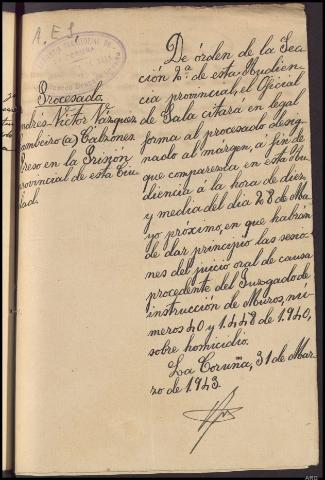 A. E S.
Procesado
Andres Victor Vazquez
Lambeiro (a) Calzones
Preso en la Prisión
provincial de esta Ciu-
dad.
De órden de la Sec-
ción 2ª. de esta Audien-
cia provincial, el Oficial
de Sala citará en legal
forma al procesado desig-
nado al margen, a fin de
que comparezca en esta Au-
diencia á la hora de diez
y media del dia 28 de Ma-
yo próximo, en que habrán
de dar principio las sesio-
nes del juicio oral de causa
procedente del Juzgado de
instrucción de Muros, nú-
meros 40 y 1.448 de 1.940,
sobre homicidio.
La Coruña, 31 de Mar-
zo de 1.943.